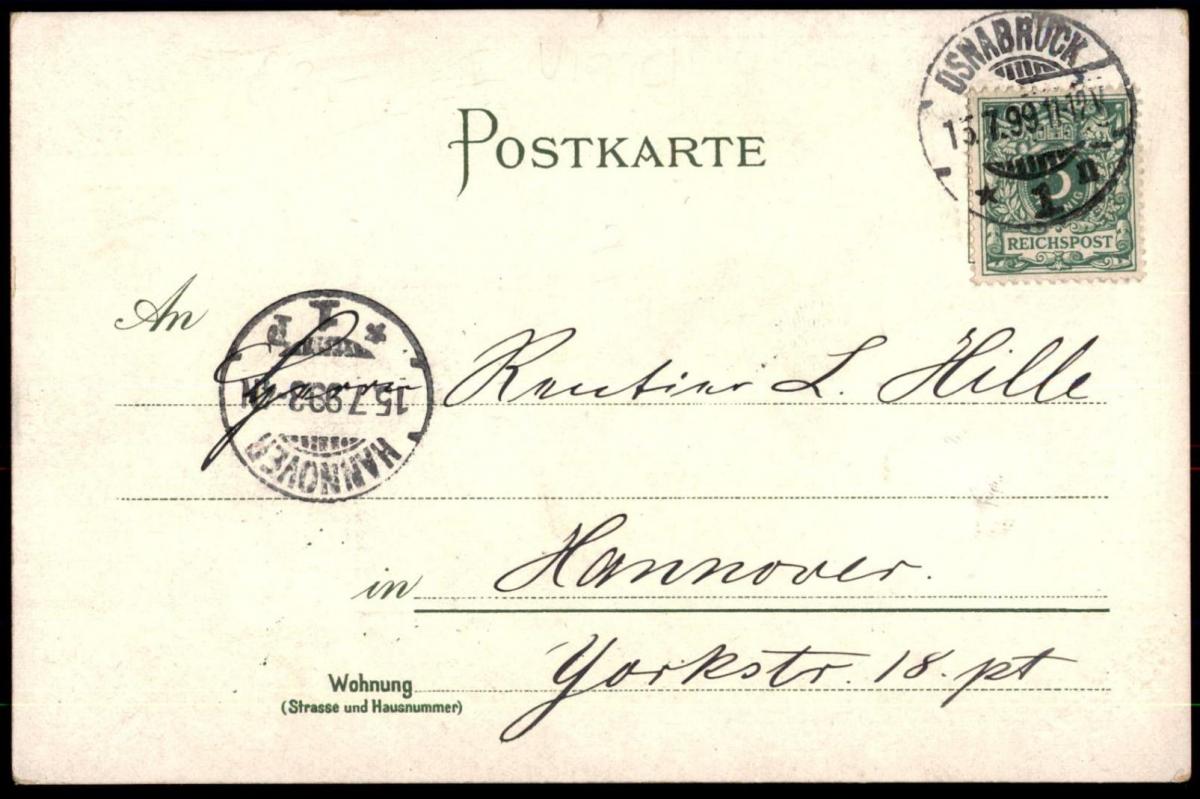 OSNABRÜCK
15.7.99.11-12V.
* 1 n
5
REICHSPOST
POSTKARTE
An
Herrn Rentier L. Hille
HANNOVER
15.7.99.
* 1 P
in Hannover.
Wohnung Yorkstr. 18. pt
(Strasse und Hausnummer)